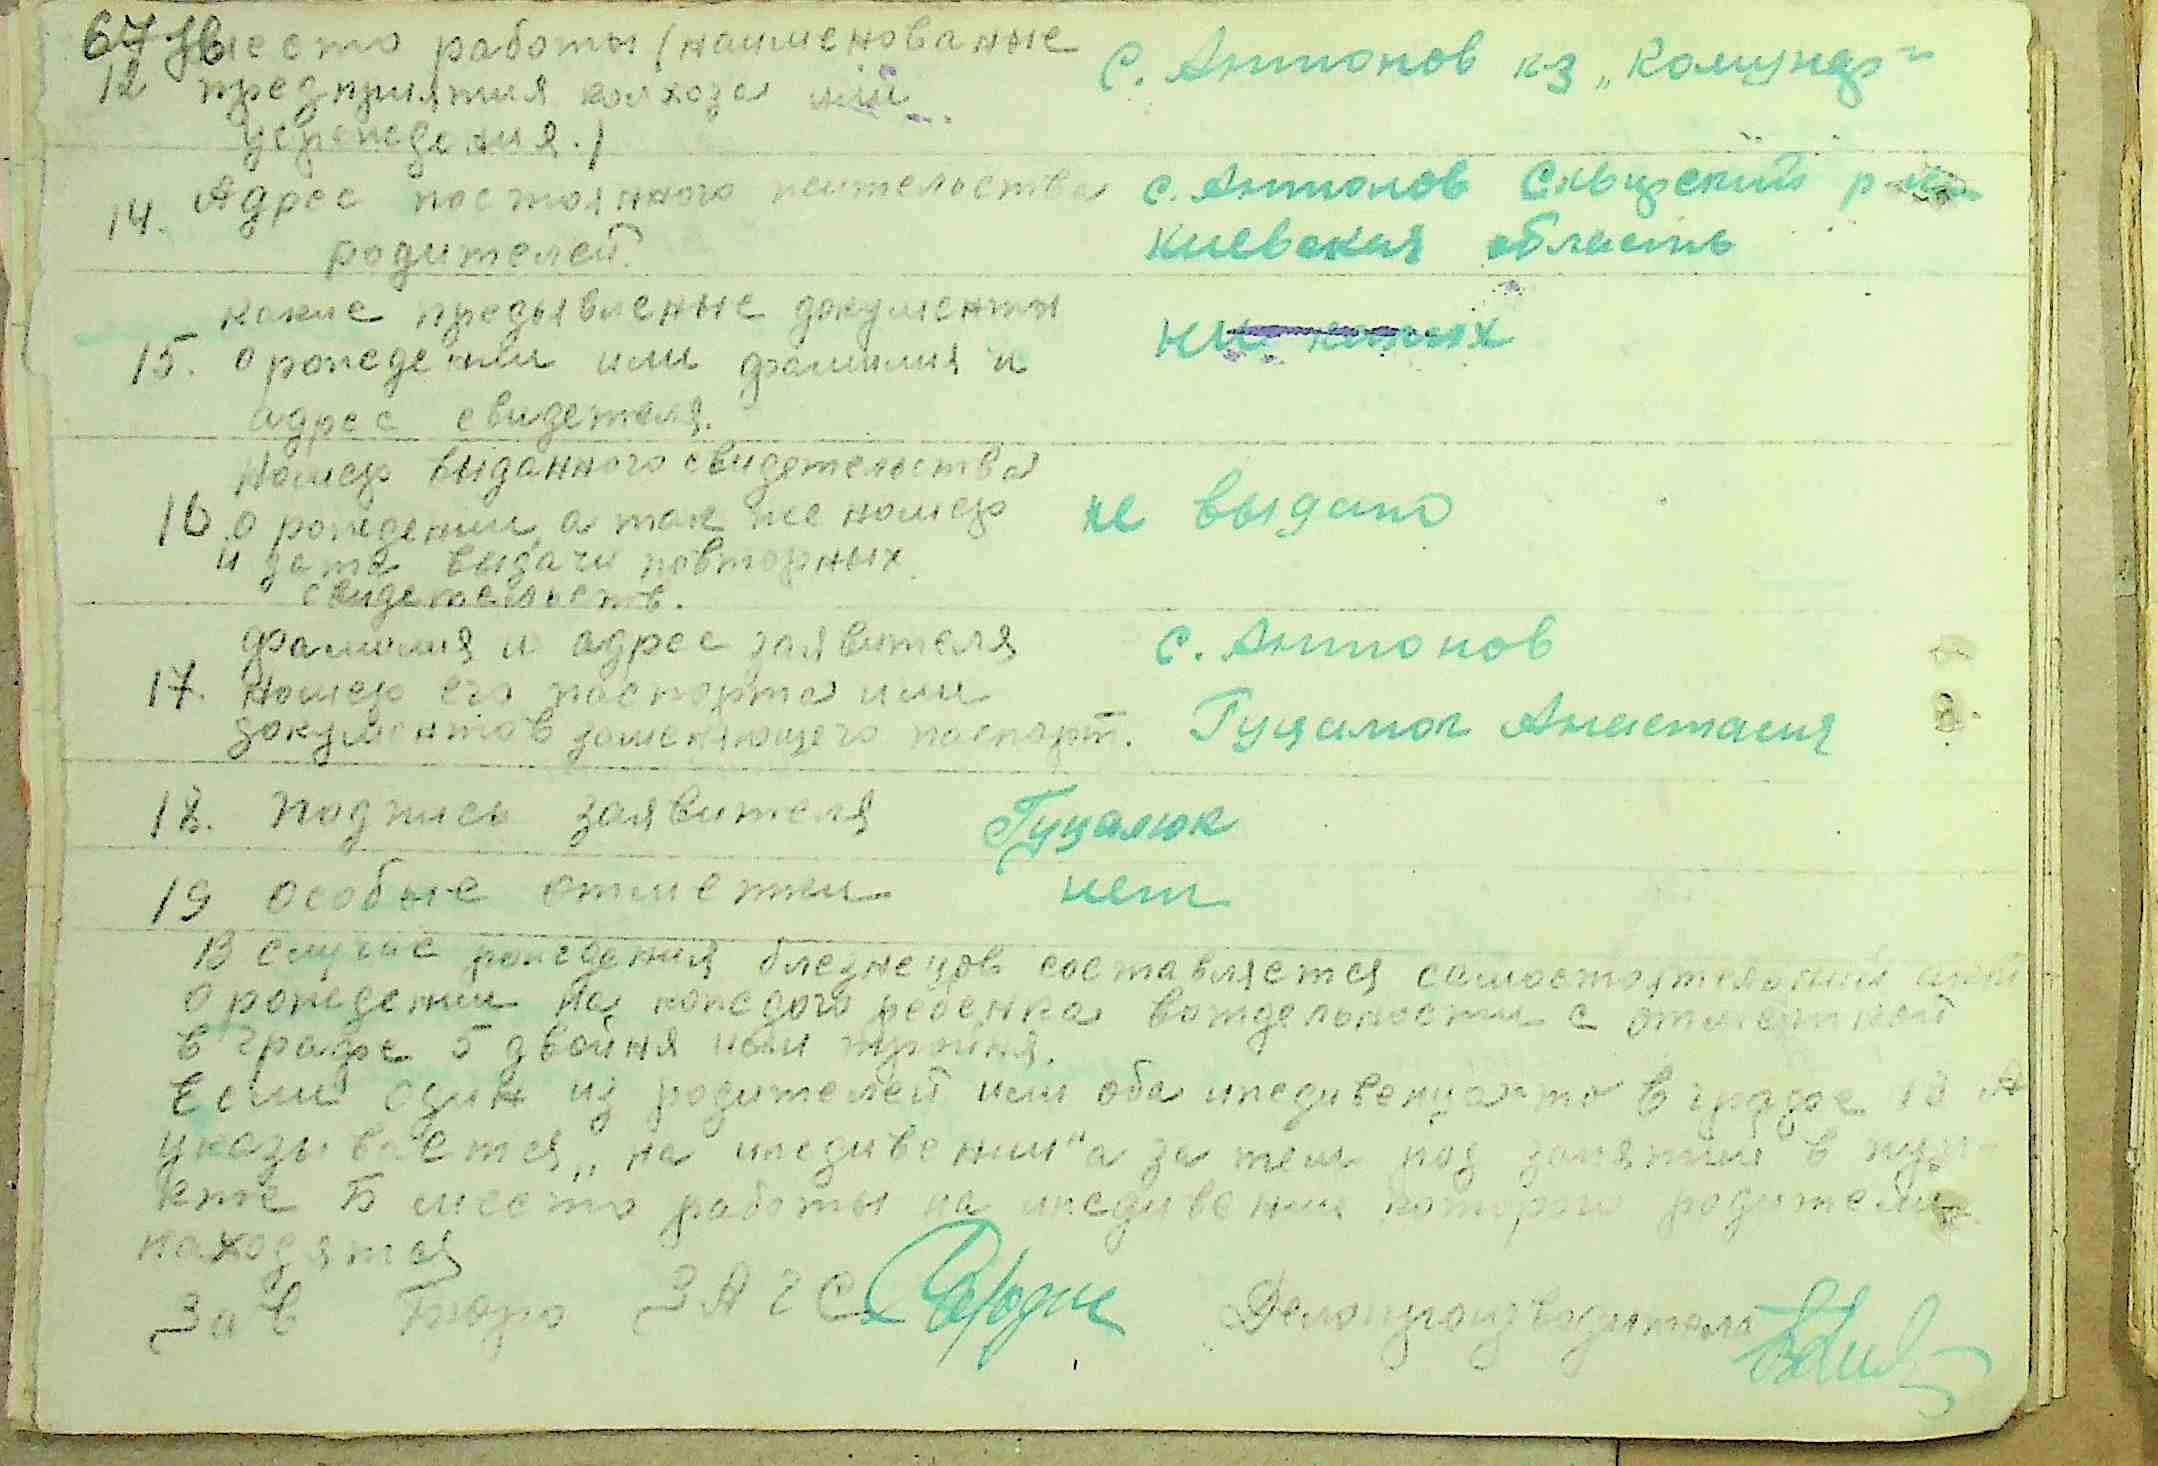 67 об
Место работы (наименованые
12 предприятия колхоза или
учреждения.)
с. Антонов кз „Комунар"
14. Адрес постоянного жительства
родителей.
с. Антонов Сквирский р-н
Киевская область
какие предъявленые документы
15. о рождении или фамилия и
адрес свидетеля.
ни каких
Номер выданного свидетельства
16 о рождении а так же номер
и дата выдачи повторных
свидетельств.
не выдано
фамилия и адрес заявителя
17. Номер его паспорта или
документов заменяющего паспорт.
с. Антонов
Гуцалюк Анастасия
18. Подпись заявителя Гуцалюк
19 особые отметки нет
В случае рождения близнецов составляется самостоятельный акт
о рождении на каждого ребенка вотдельности с отметкой
в графе 5 двойня или тройня.
Если один из родителей или оба иждивенца то в графе 13 А
указывается „на иждивении" а за тем род занятий в пун-
кте Б место работы на иждивении которого родители
находятся
Зав Бюро ЗАГС Делопроизводитель